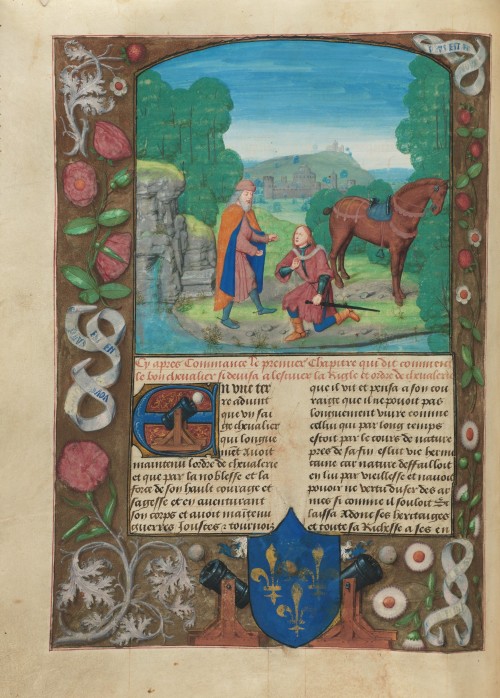 PLVS EST EN
Cy apres Commance le premier Chapitre qui dit comment
le bon chevalier se devisa a lescuier la Rigle et ordre de chevalerie
En une ter
re advint
que un sai
ge chevalier
qui longue
ment Avoit
maintenu lordre de chevalerie
et que par la noblesse et la
force de son hault courage et
sagesse et en aventurant
son corps et avoit maintenu
guerres Joustes: tournois
que il vit et pensa a son cou
raige que il ne pouoit pas
longuement vivre comme
cellui qui par long temps
estoit par le cours de nature
pres de sa fin eslut vie herm
taine car nature deffailloit
en lui par vieillesse et navoit
pouoir ne vertu duser des ar
mes si comme il souloit Et
laissa Adonc ses heritaiges
et toute sa Richesse a ses en